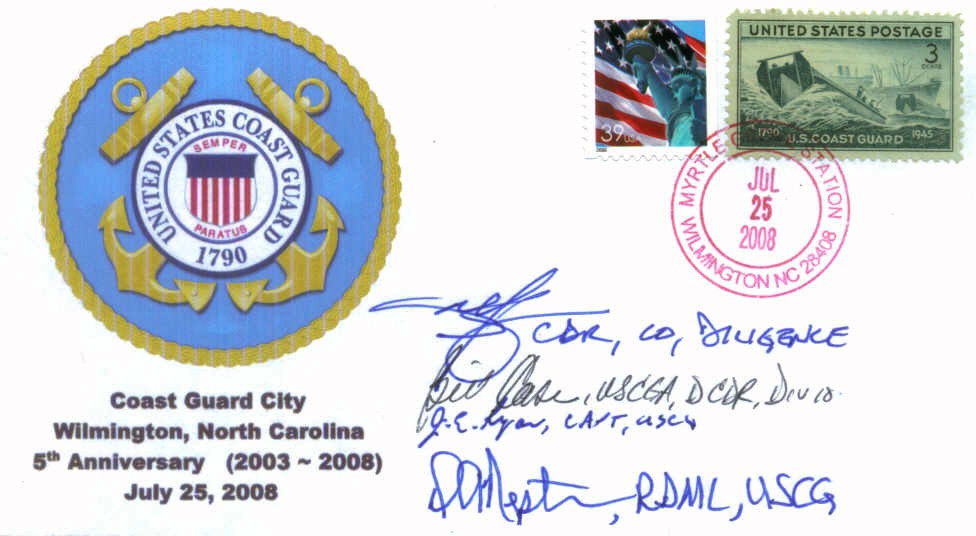 UNITED STATES COAST GUARD
SEMPER
PARATUS
1790
39 USA
UNITED STATES POSTAGE
3
CENTS
1790 U.S. COAST GUARD 1945
MYRTLE STATION
JUL
25
2008
WILMINGTON NC 28408
CDR, CO, DILIGENCE
Bill, USCGA, DCDR, Div 10.
J.E. Ryan, CAPT, USCG
RDML, USCG
Coast Guard City
Wilmington, North Carolina
5th Anniversary (2003 ~ 2008)
July 25, 2008